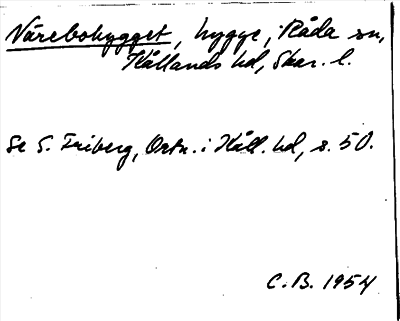 Vårebohygget, hygge, Råda sn,
Kållands hd, Skar. l.
Se S. Friberg, Ortn. i Kåll. hd, s. 50.
C. B. 1954